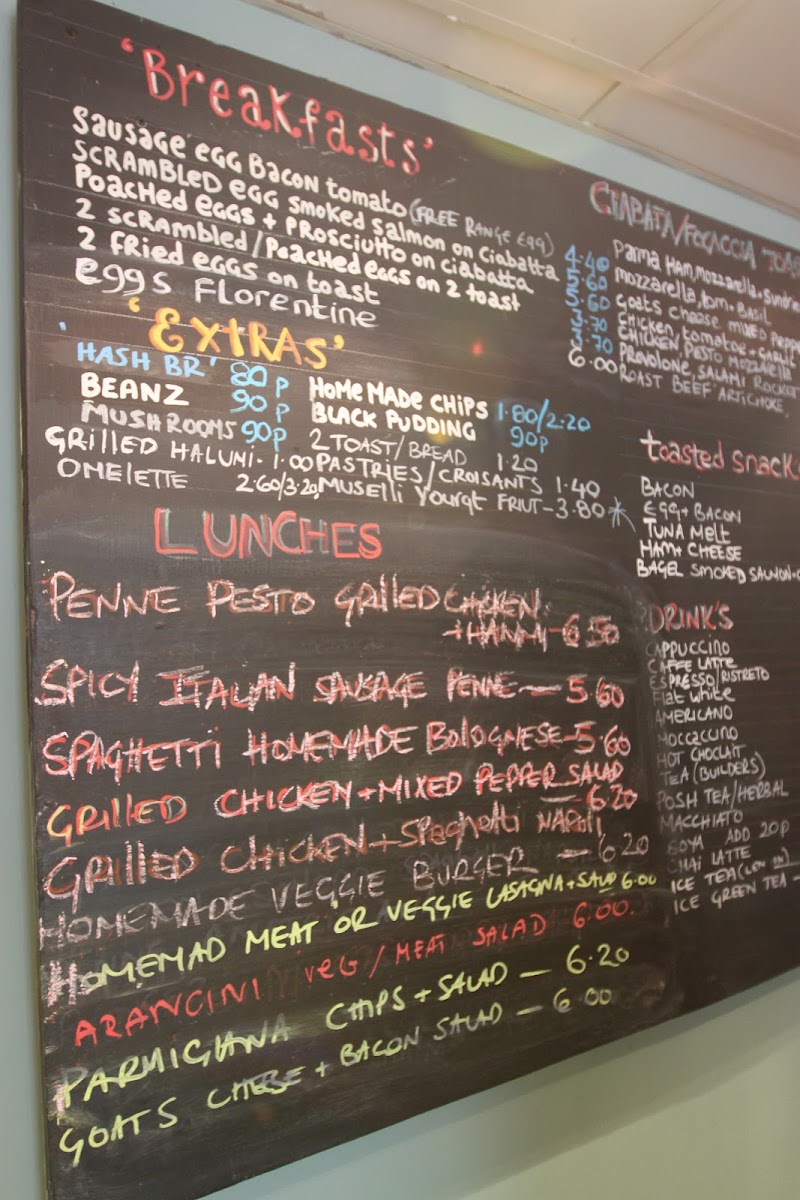 'Breakfasts'
Sausage egg Bacon tomato (FREE RANGE Egg)
SCRAMBLED egg smoked salmon on Ciabatta 4.40
Poached eggs + PROSCIUTTO on ciabatta 5.60
2 scrambled/Poached eggs on 2 toast 5.60
2 fried eggs on toast 3.70
eggs Florentine 3.70
6.00
'EXTRAS'
'HASH BR' 80p
BEANZ 90p
MUSHROOMS 90p
GRILLED HALUMI. 1.00
OMELETTE 2.60/3.20
HOMEMADE CHIPS 1.80/2.20
BLACK PUDDING 90p
2 TOAST/BREAD 1.20
PASTRIES/CROISANTS 1.40
MUSELLI YOURGT FRIUT-3.80
LUNCHES
PENNE PESTO GRILLED CHICKEN
6.50
SPICY ITALIAN SAUSAGE PENNE — 5.60
SPAGHETTI HOMEMADE BOLOGNESE-5.60
GRILLED CHICKEN+MIXED PEPPER SALAD
— 6.20
GRILLED CHICKEN+SPAGHETTI NAPOLI
HOMEMADE VEGGIE BURGER — 6.20
HOMEMAD MEAT OR VEGGIE LASAGNA+SALAD 6.00
ARANCINI VEG/MEAT SALAD 6.00.
PARMIGIANA CHIPS+SALAD — 6.20
GOATS CHEESE + BACON SALAD — 6.00
CIABATA/FOCACCIA
PARMA HAM, MOZZARELLA+
MOZZARELLA, tom + BASIL
GOATS CHEESE MIXED
CHICKEN, tomatoe + GARLIC
CHICKEN PESTO MOZZARELLA
PROVOLONE, SALAMI ROCKET
ROAST BEEF ARTICHOKE,
toasted
BACON
Egg + BACON
TUNA MELT
HAM + CHEESE
BAGEL SMOKED SALMON+
DRINK'S
CAPPUCCINO
CAFFE LATTE
ESPRESSO/RISTRETO
Flat white
AMERICANO
MOCCACCINO
HOT CHOCLAT
TEA (BUILDERS)
POSH TEA/HERBAL
MACCHIATO
SOYA ADD 20p
CHAI LATTE
ICE TEA
ICE GREEN TEA -